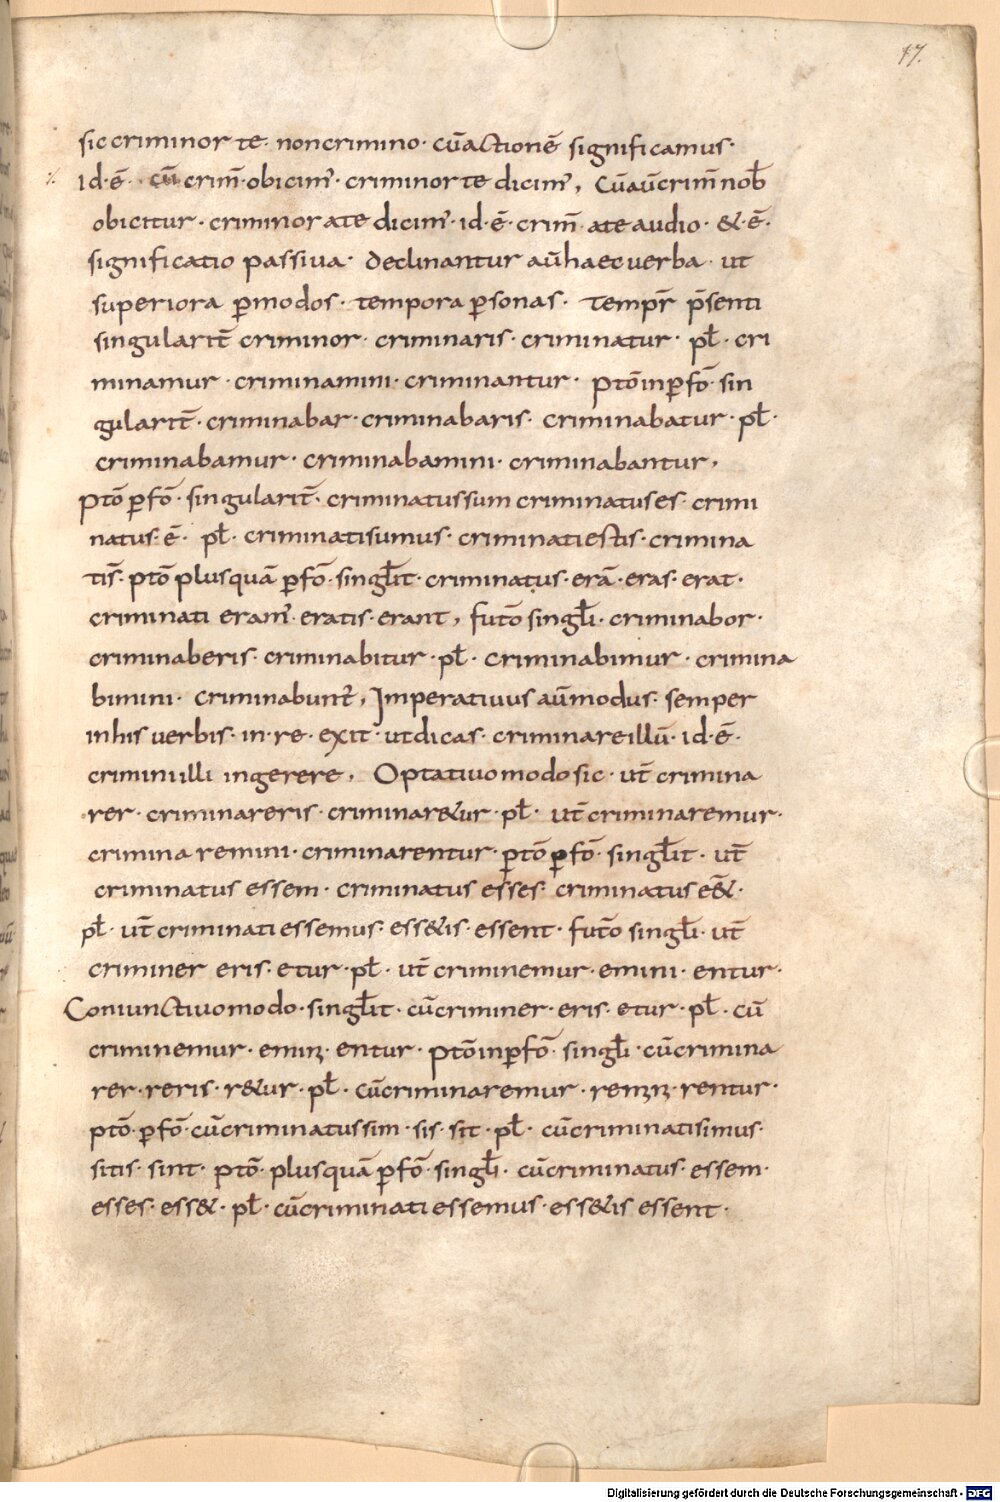 17.
sic criminor te· non crimino· cū actionē significamus·
id·ē· cū crim̄·obicim̓· criminor te dicim̓, Cū aū crim̄ nob̄
obicitur· criminor a te dicim̓· id·ē· crim̄· a te audio· &·ē·
significatio passiua· declinantur aū haec uerba· ut
superiora p̱ modos· tempora p̱sonas· Tempr̄ p̄senti
singularit̄ criminor· criminaris· criminatur· pł· cri
minamur· criminamini· criminantur· ptō inp̱fō· sin
gularit̄· criminabar· criminabaris· criminabatur· pł·
criminabamur· criminabamini· criminabantur,
ptō p̱fō· singularit̄· criminatus sum criminatus es· crimi
natus·ē· pł· criminati sumus· criminati estis· crimina
ti s̄· ptō plusquā p̱fō· singłit· criminatus· erā· eras· erat·
criminati eram̓· eratis· erant, futō singłi· criminabor·
criminaberis· criminabitur· pł· criminabimur· crimina
bimini· criminabunt̓, Imperatiuus aū modus· semper
in his uerbis· in·re· exit· ut dicas· criminare illū· id·ē·
crimin illi ingerere, Optatiuo modo sic· ut̄ crimina
rer· criminareris· criminar&ur· pł· ut̄ criminaremur·
criminaremini· criminarentur· p̱tō p̱fō· singłit· ut̄
criminatus essem· criminatus esses· criminatus ess&·
pł· ut̄ criminati essemus· ess&is· essent· futō singłi· ut̄
criminer eris· etur· pł· ut̄ criminemur· emini· entur·
Coniunctiuo modo· singłit· cū criminer· eris· etur· pł· cū
criminemur· emiꝫ· entur· ptō inp̱fō· singłi· cū crimina
rer· reris· r&ur· pł· cū criminaremur· remꝫꝫ· rentur·
ptō· p̱fō· cū criminatus sim· sis· sit· pł· cū criminati simus·
sitis· sint· ptō· plusquā p̱fō· singłi· cū criminatus· essem·
esses· ess&· pł· cū criminati essemus· ess&is essent·
Digitalisierung gefördert durch die Deutsche Forschungsgemeinschaft - DFG